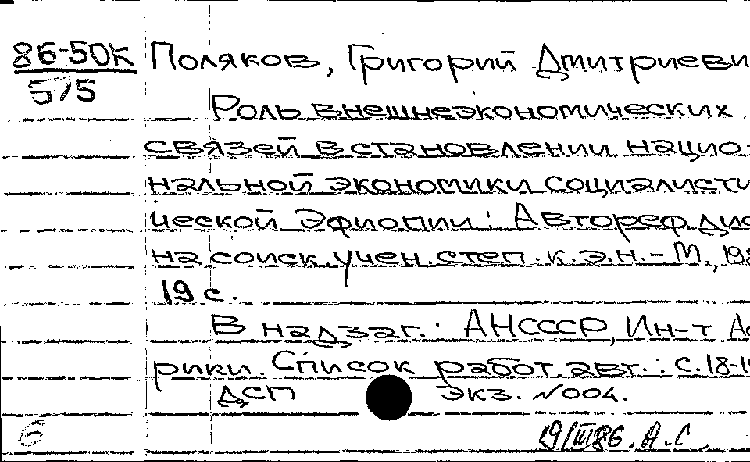 86-50К Поляков, Григорий Дмитриеви
515
Роль внешнеэкономических
связей в становлении нацио-
нальной экономики социалисти
ческой Эфиопии: Автореф. дис
на соиск. учен. степ. к. э. н. - М., 198
19 с.
В надзаг.: АН СССР, Ин-т Аф
рики. Список работ авт.: с. 18-19
ДСП экз. №004.
б 19/III86. А.С.